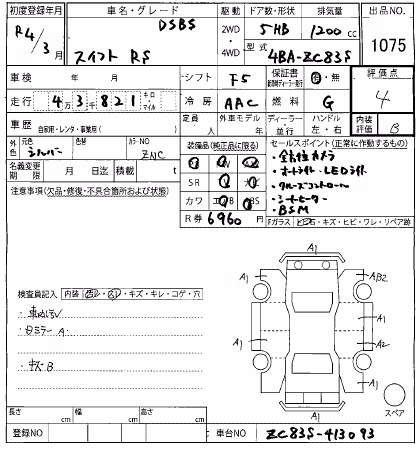 初度登録年月
車名・グレード
駆動
ドア数・形状
排気量
出品NO.
R4/3月
DSBS
スイフト RS
2WD・4WD
5HB
1200cc
型式
4BA-ZC83S
1075
車検
年 月
シフト
F5
保証書
有・無
評価点
走行
43千821
キロ・マイル
冷房
AAC
燃料
G
4
車歴
自家用・レンタ・事業用( )
定員
人
外車モデル
年
ディーラー
並行
ハンドル
左・右
内装評価
B
外色
元色
シルバー
色替
カラーNO
ZNC
装備品(純正品に限る)
セールスポイント(正常に作動するもの)
名義変更期限
月 日迄
積載
t
SR
ナビ
・全方位カメラ
・オートライト・LEDライト
・クルーズコントロール
・シートヒーター
・BSM
注意事項(欠品・修復・不具合箇所および状態)
カワ
エアB
ABS
R券
6960円
Fガラス
・キズ・ヒビ・ワレ・リペア跡
検査員記入
内装
・キズ・キレ・コゲ・穴
A1
A1
AB2
A1
A1
A2
A1
A1
A1
スペア
長さ
cm
幅
cm
高さ
cm
登録NO
車台NO
ZC83S-413093